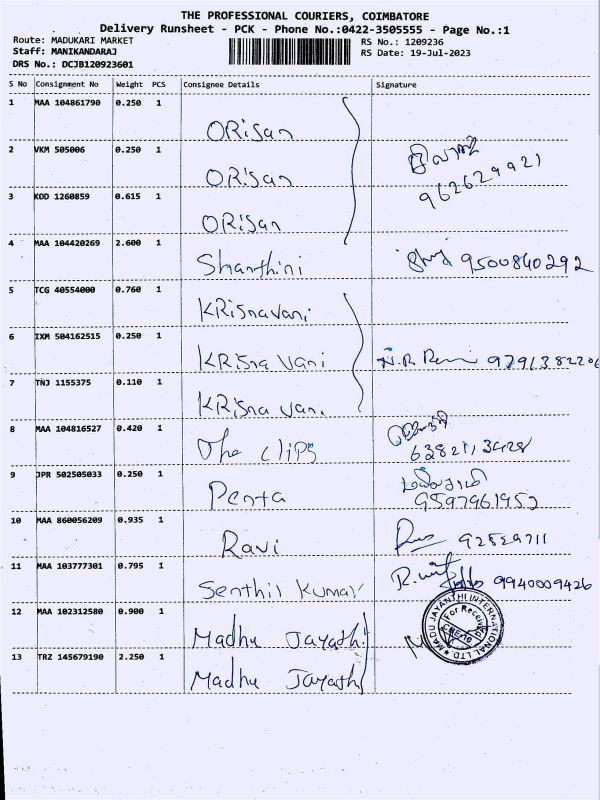 THE PROFESSIONAL COURIERS, COIMBATORE
Delivery Runsheet - PCK - Phone No.:0422-3505555 - Page No.:1
Route: MADUKARI MARKET RS No.: 1209236
Staff: MANIKANDARAJ RS Date: 19-Jul-2023
DRS No.: DCJB120923601
S No Consignment No Weight PCS Consignee Details Signature
1 MAA 104861790 0.250 1 ORisan
2 VKM 505006 0.250 1 ORisan
962629921
3 KOD 1260859 0.615 1 ORisan
4 MAA 104420269 2.600 1 Shanthini 9500840292
5 TCG 40554000 0.760 1 KRisnavani
6 IXM 504162515 0.250 1 KRisna vani 9791382206
7 TNJ 1155375 0.110 1 KRisna vani
8 MAA 104816527 0.420 1 The clips
9 JPR 502505033 0.250 1 Penta 9597961952
10 MAA 860056209 0.935 1 Ravi
11 MAA 103777301 0.795 1 Senthil Kumar 9940009426
12 MAA 102312580 0.900 1 Madhu Jayathi
MADU JAYANTHI INTERNATIONAL LTD
For Received
13 TRZ 145679190 2.250 1 Madhu Jayathi